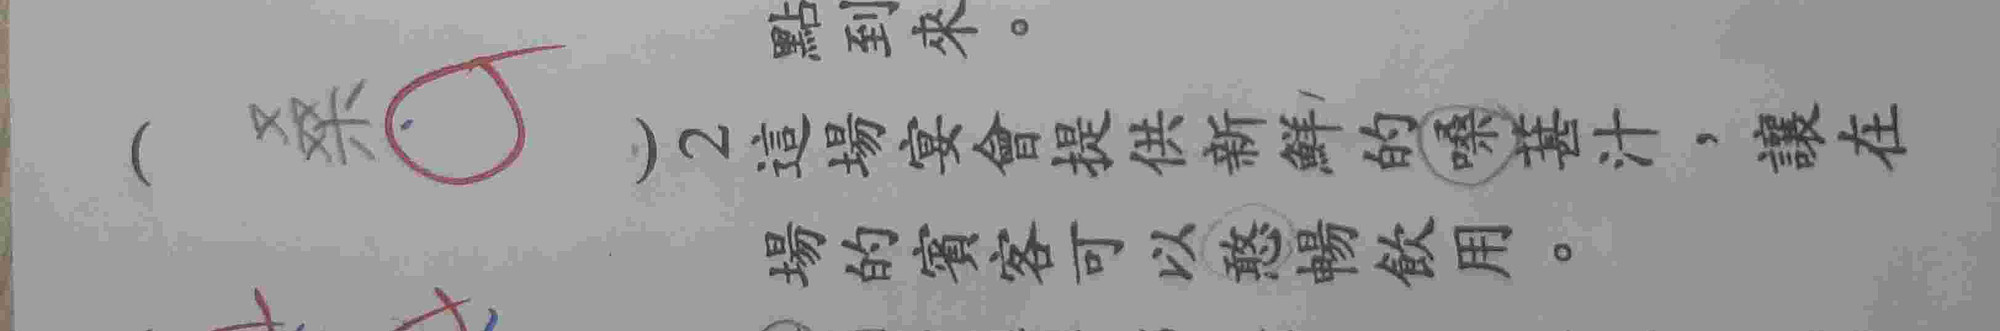 點到來。
(桑)2這場宴會提供新鮮的嗓葚汁，讓在
場的賓客可以憨暢飲用。